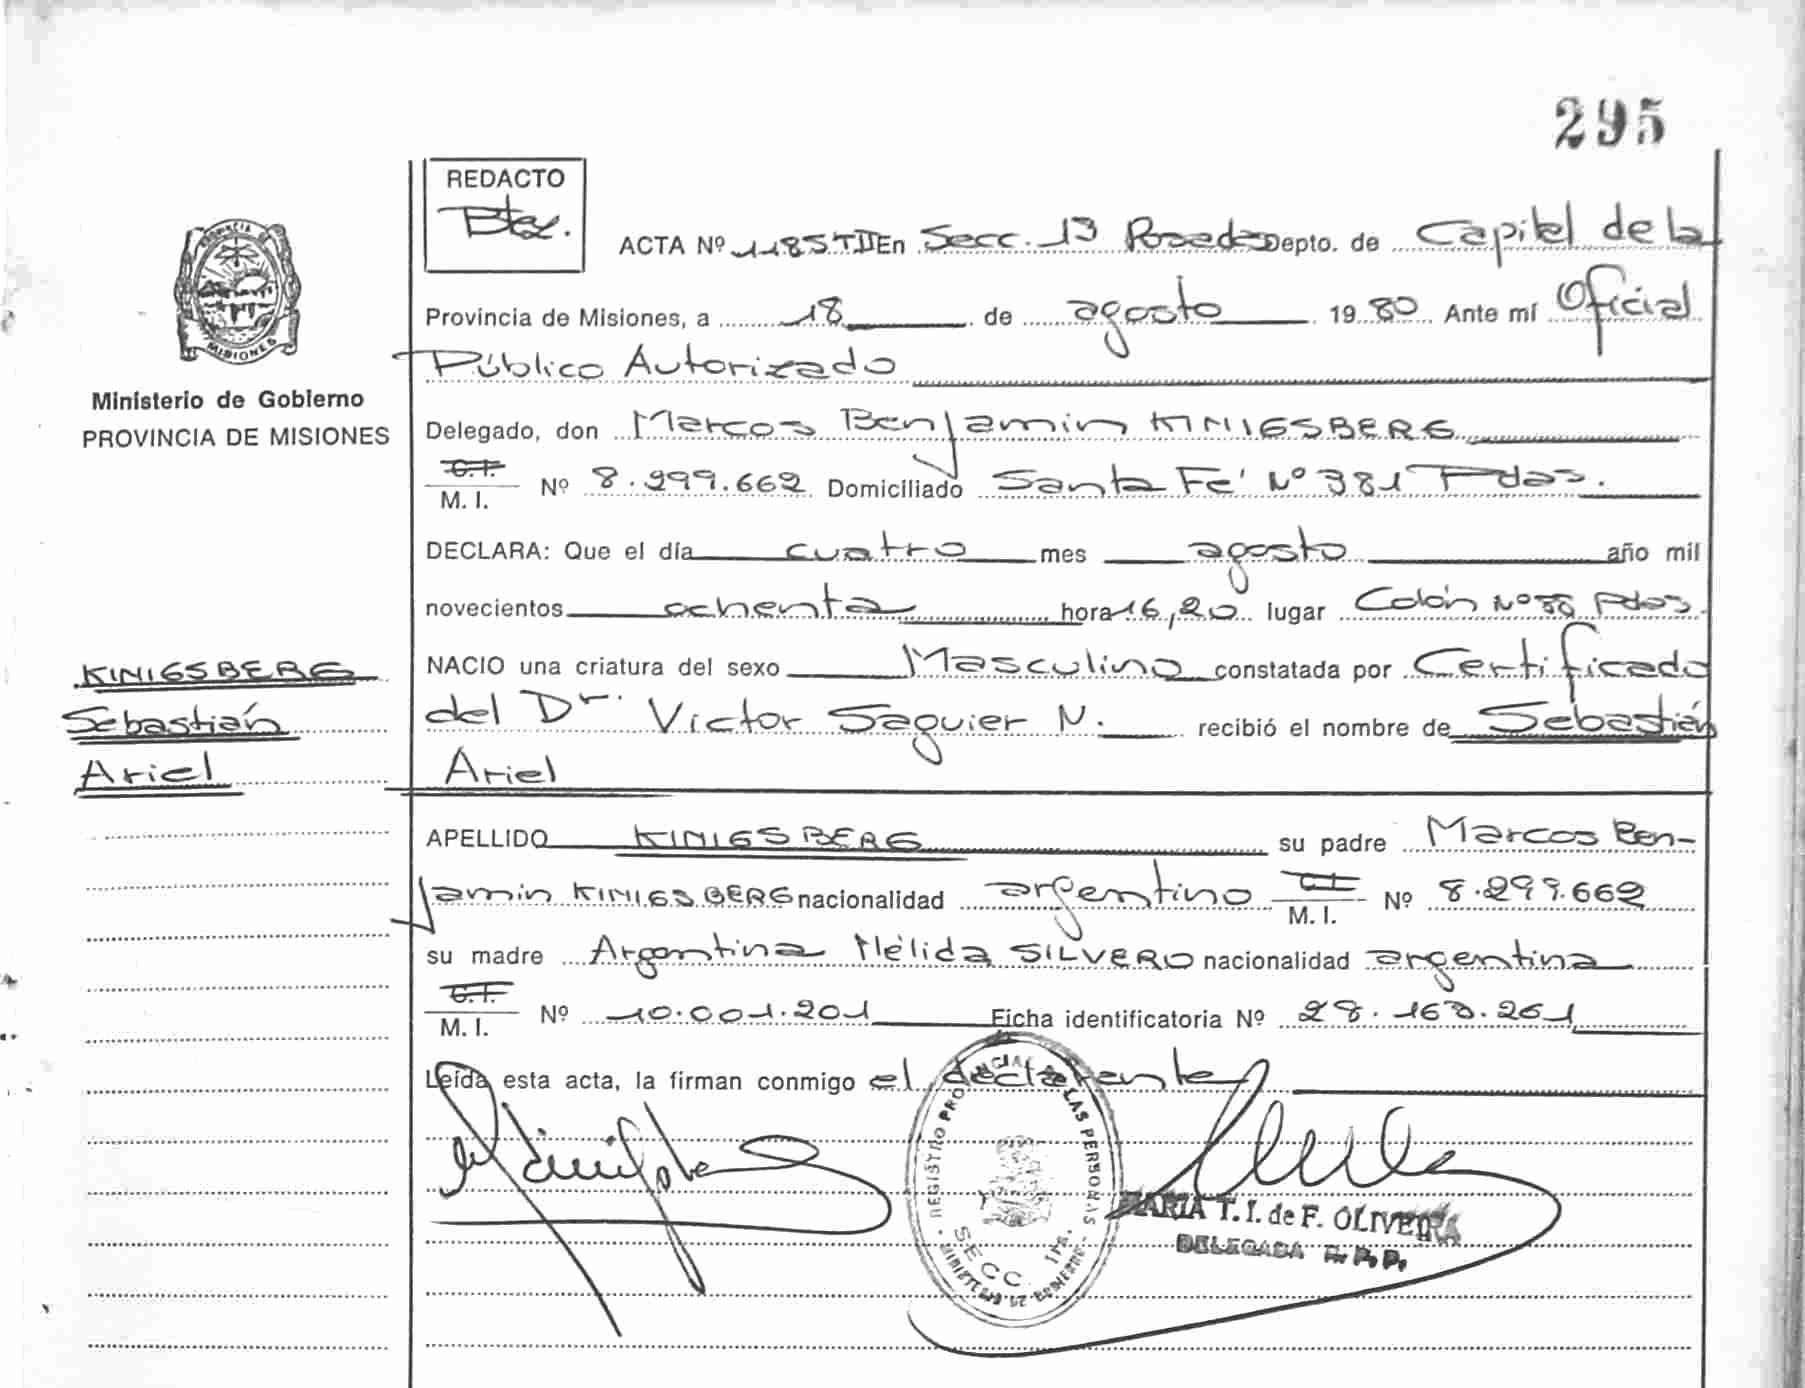 295
REDACTO
Btz.
ACTA Nº 1185 TII En Secc. 1ª Posadas Depto. de Capital de la
Provincia de Misiones, a 18 de agosto 1980 Ante mí Oficial
Público Autorizado
PROVINCIA
MISIONES
Ministerio de Gobierno
PROVINCIA DE MISIONES
Delegado, don Marcos Benjamin KINIGSBERG
C.I.
M. I. Nº 8.299.662 Domiciliado Santa Fé Nº 381 Pdas.
DECLARA: Que el día cuatro mes agosto año mil
novecientos ochenta hora 16,20 lugar Colón Nº Pdas.
KINIGSBERG
Sebastián
Ariel
NACIO una criatura del sexo Masculino constatada por Certificado
del Dr. Victor Saguier N. recibió el nombre de Sebastián
Ariel
APELLIDO KINIGSBERG su padre Marcos Ben-
jamin KINIGSBERG nacionalidad argentino C.I. M. I. Nº 8.299.662
su madre Argentina Nélida SILVERO nacionalidad argentina
C.I.
M. I. Nº 10.001.201 Ficha identificatoria Nº 28.163.261
Leída esta acta, la firman conmigo el declarante
REGISTRO PROVINCIAL DE LAS PERSONAS
SECC. 1ra.
MINISTERIO DE GOBIERNO
MARIA T. I. de F. OLIVEIRA
DELEGADA R. P. P.